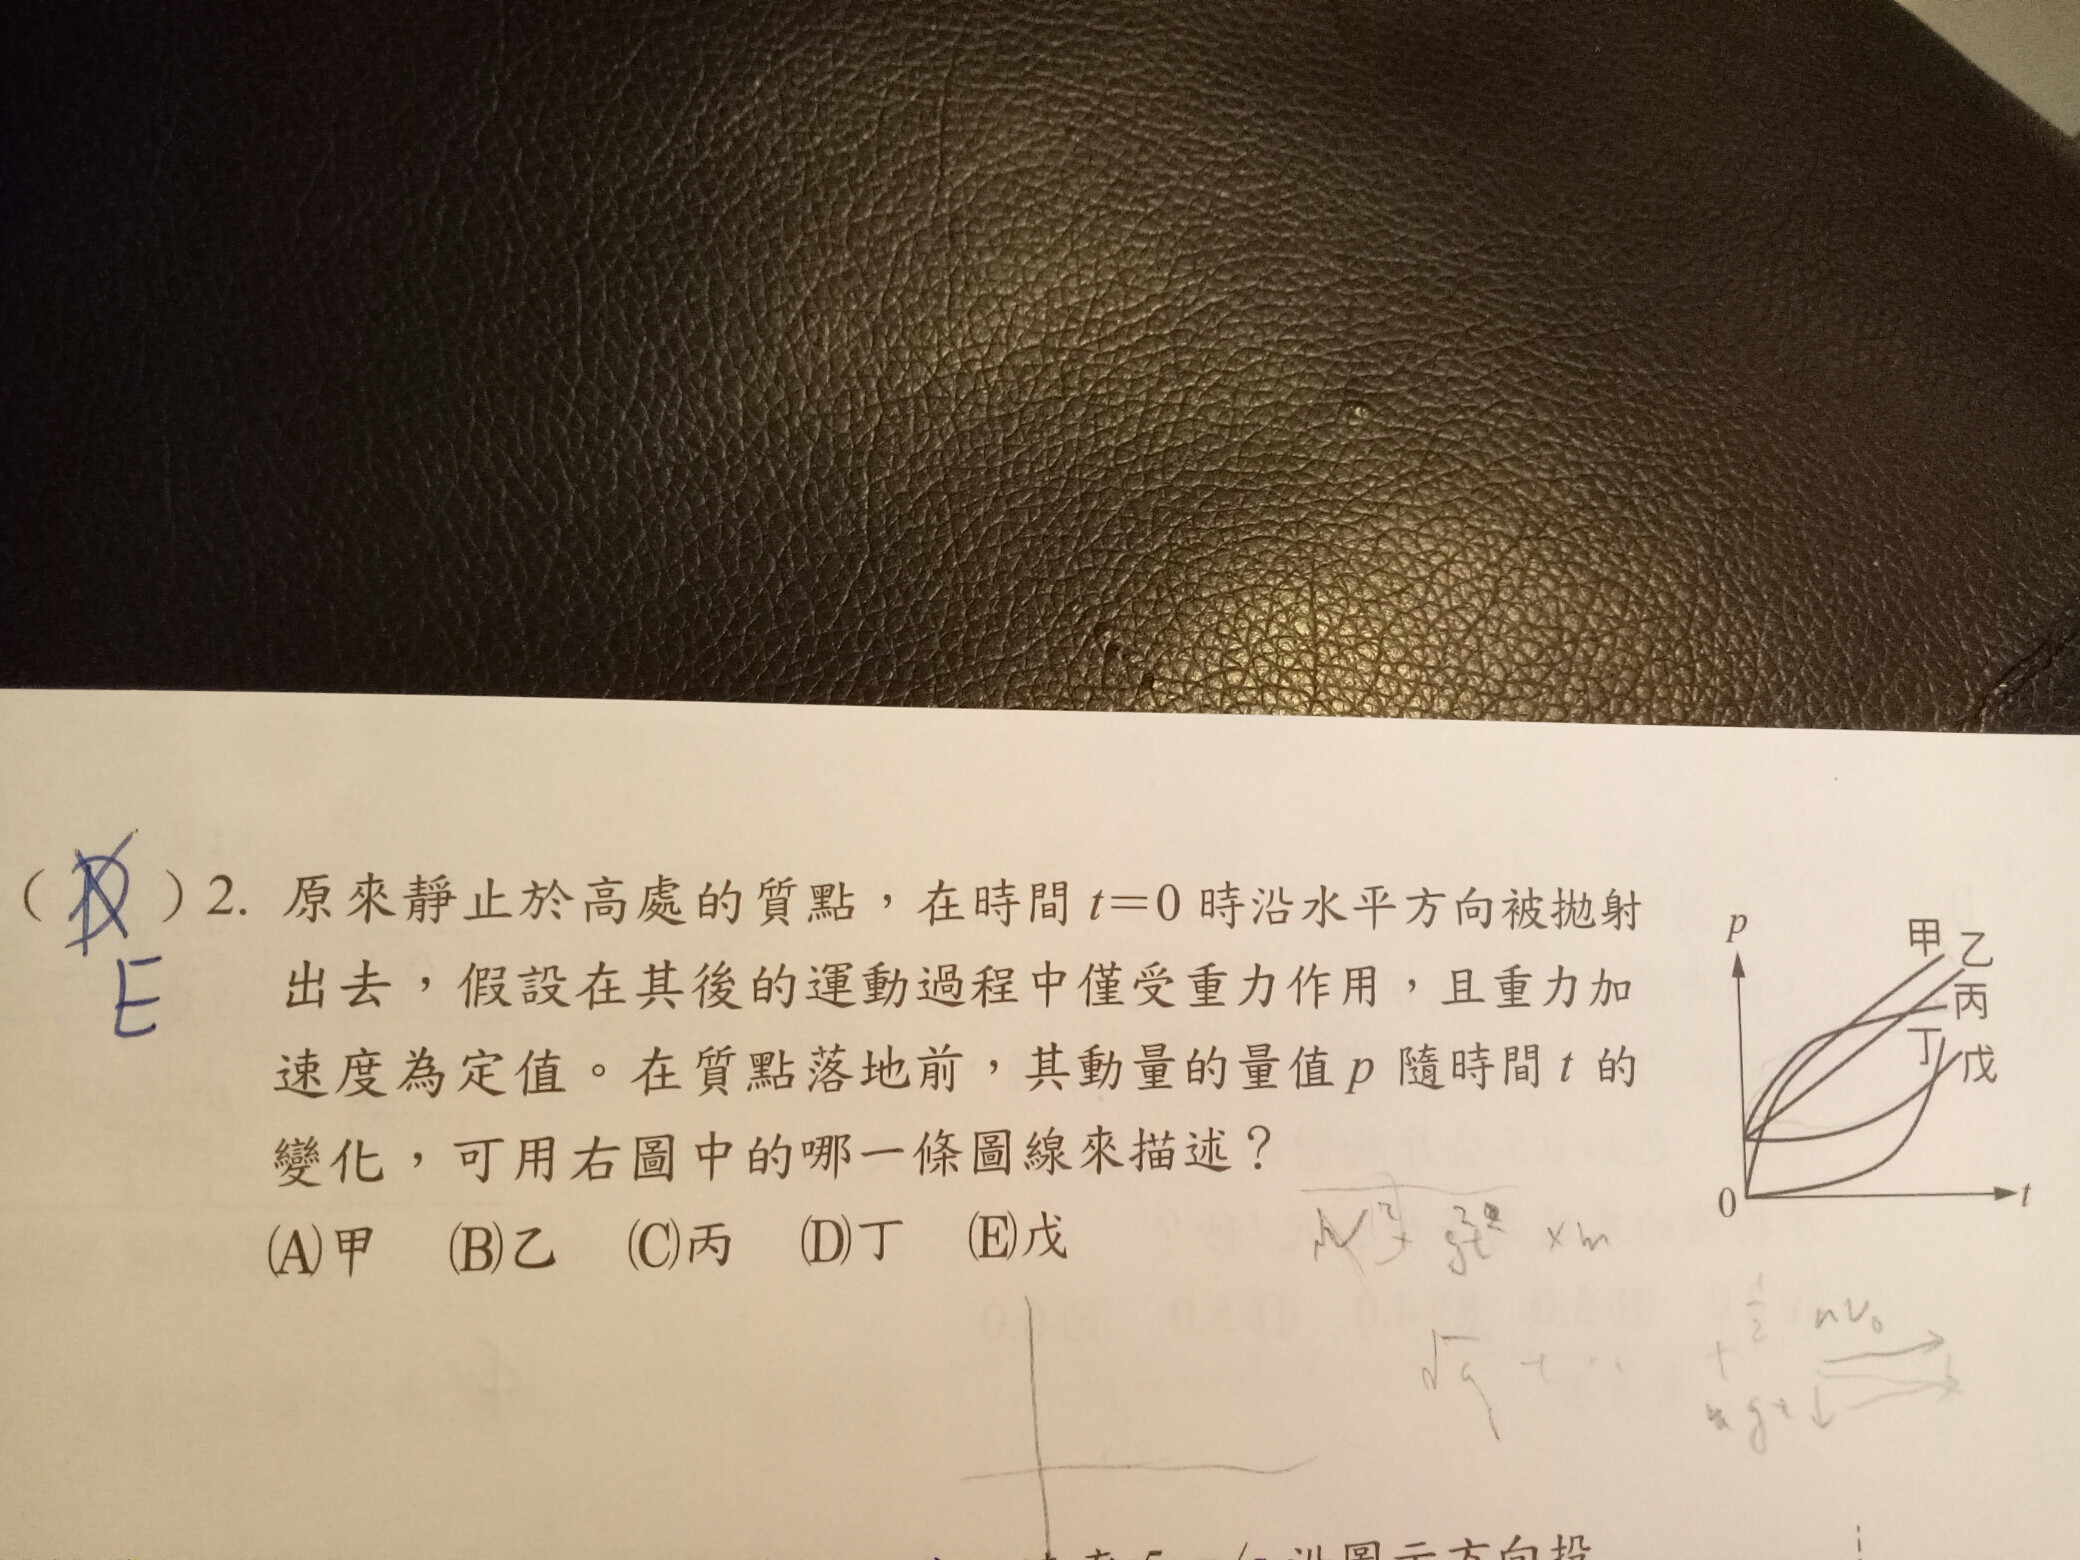 (D)2. 原來靜止於高處的質點，在時間 t=0 時沿水平方向被拋射
E
出去，假設在其後的運動過程中僅受重力作用，且重力加
速度為定值。在質點落地前，其動量的量值 p 隨時間 t 的
變化，可用右圖中的哪一條圖線來描述？
(A)甲 (B)乙 (C)丙 (D)丁 (E)戊
p
甲
乙
丙
丁
戊
0
t
×m